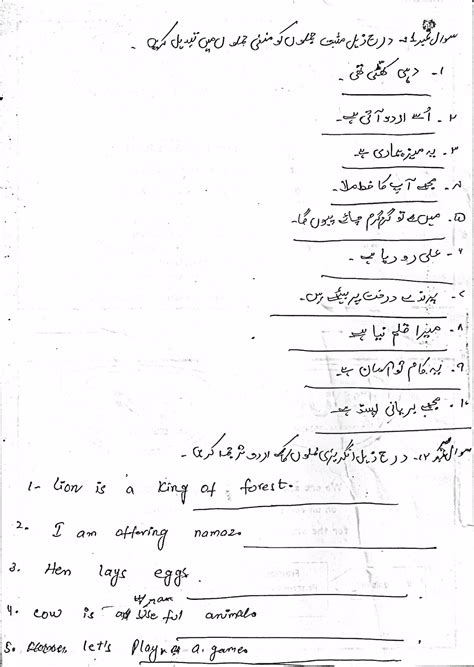 سوال نمبر 1:۔ درج ذیل مثبت جملوں کو منفی جملوں میں تبدیل کریں ۔
۱۔ دہی کھٹی تھی ۔
۲۔ اُسے اردو آتی ہے۔
۳۔ یہ میز ہماری ہے۔
۴۔ مجھے آپ کا خط ملا۔
۵۔ میں تو گرم گرم چائے پیوں گا۔
۶۔ علی رو رہا ہے ۔
۷۔ پرندے درخت پر بیٹھے ہیں۔
۸۔ میرا قلم نیا ہے
۹۔ یہ کام تو آسان ہے۔
۱۰۔ مجھے بریانی پسند ہے
سوال نمبر ۲:۔ درج ذیل انگریزی جملوں کا اردو ترجمہ کریں ۔
1- Lion is a King of forest.
2. I am offering namaz.
3. Hen lays eggs.
4. cow is use ful animal.
5. let's Play a game.